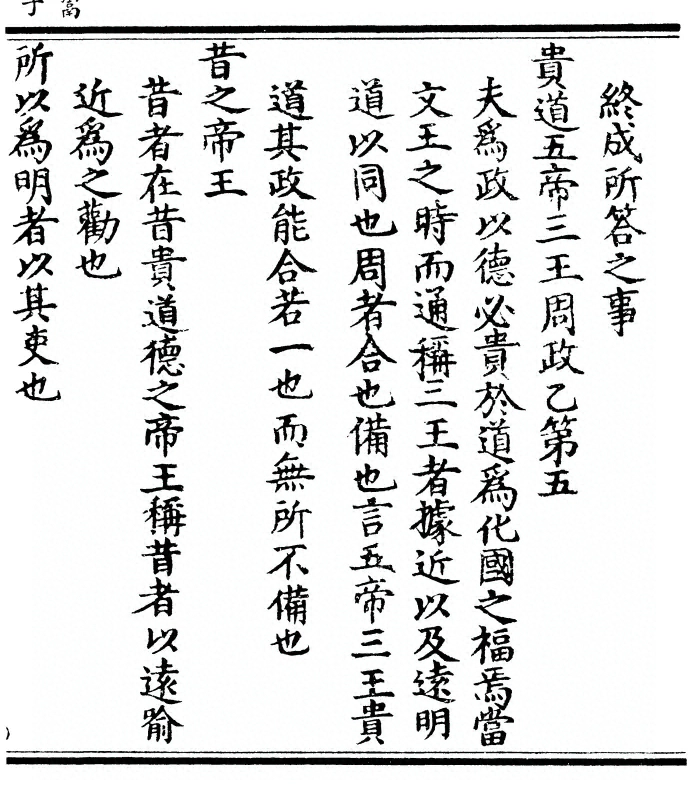 終成所答之事
貴道五帝三王周政乙第五
夫爲政以德必貴於道爲化國之福焉當
文王之時而通稱三王者據近以及遠明
道以同也周者合也備也言五帝三王貴
道其政能合若一也而無所不備也
昔之帝王
昔者在昔貴道德之帝王稱昔者以遠喻
近爲之勸也
所以爲明者以其吏也